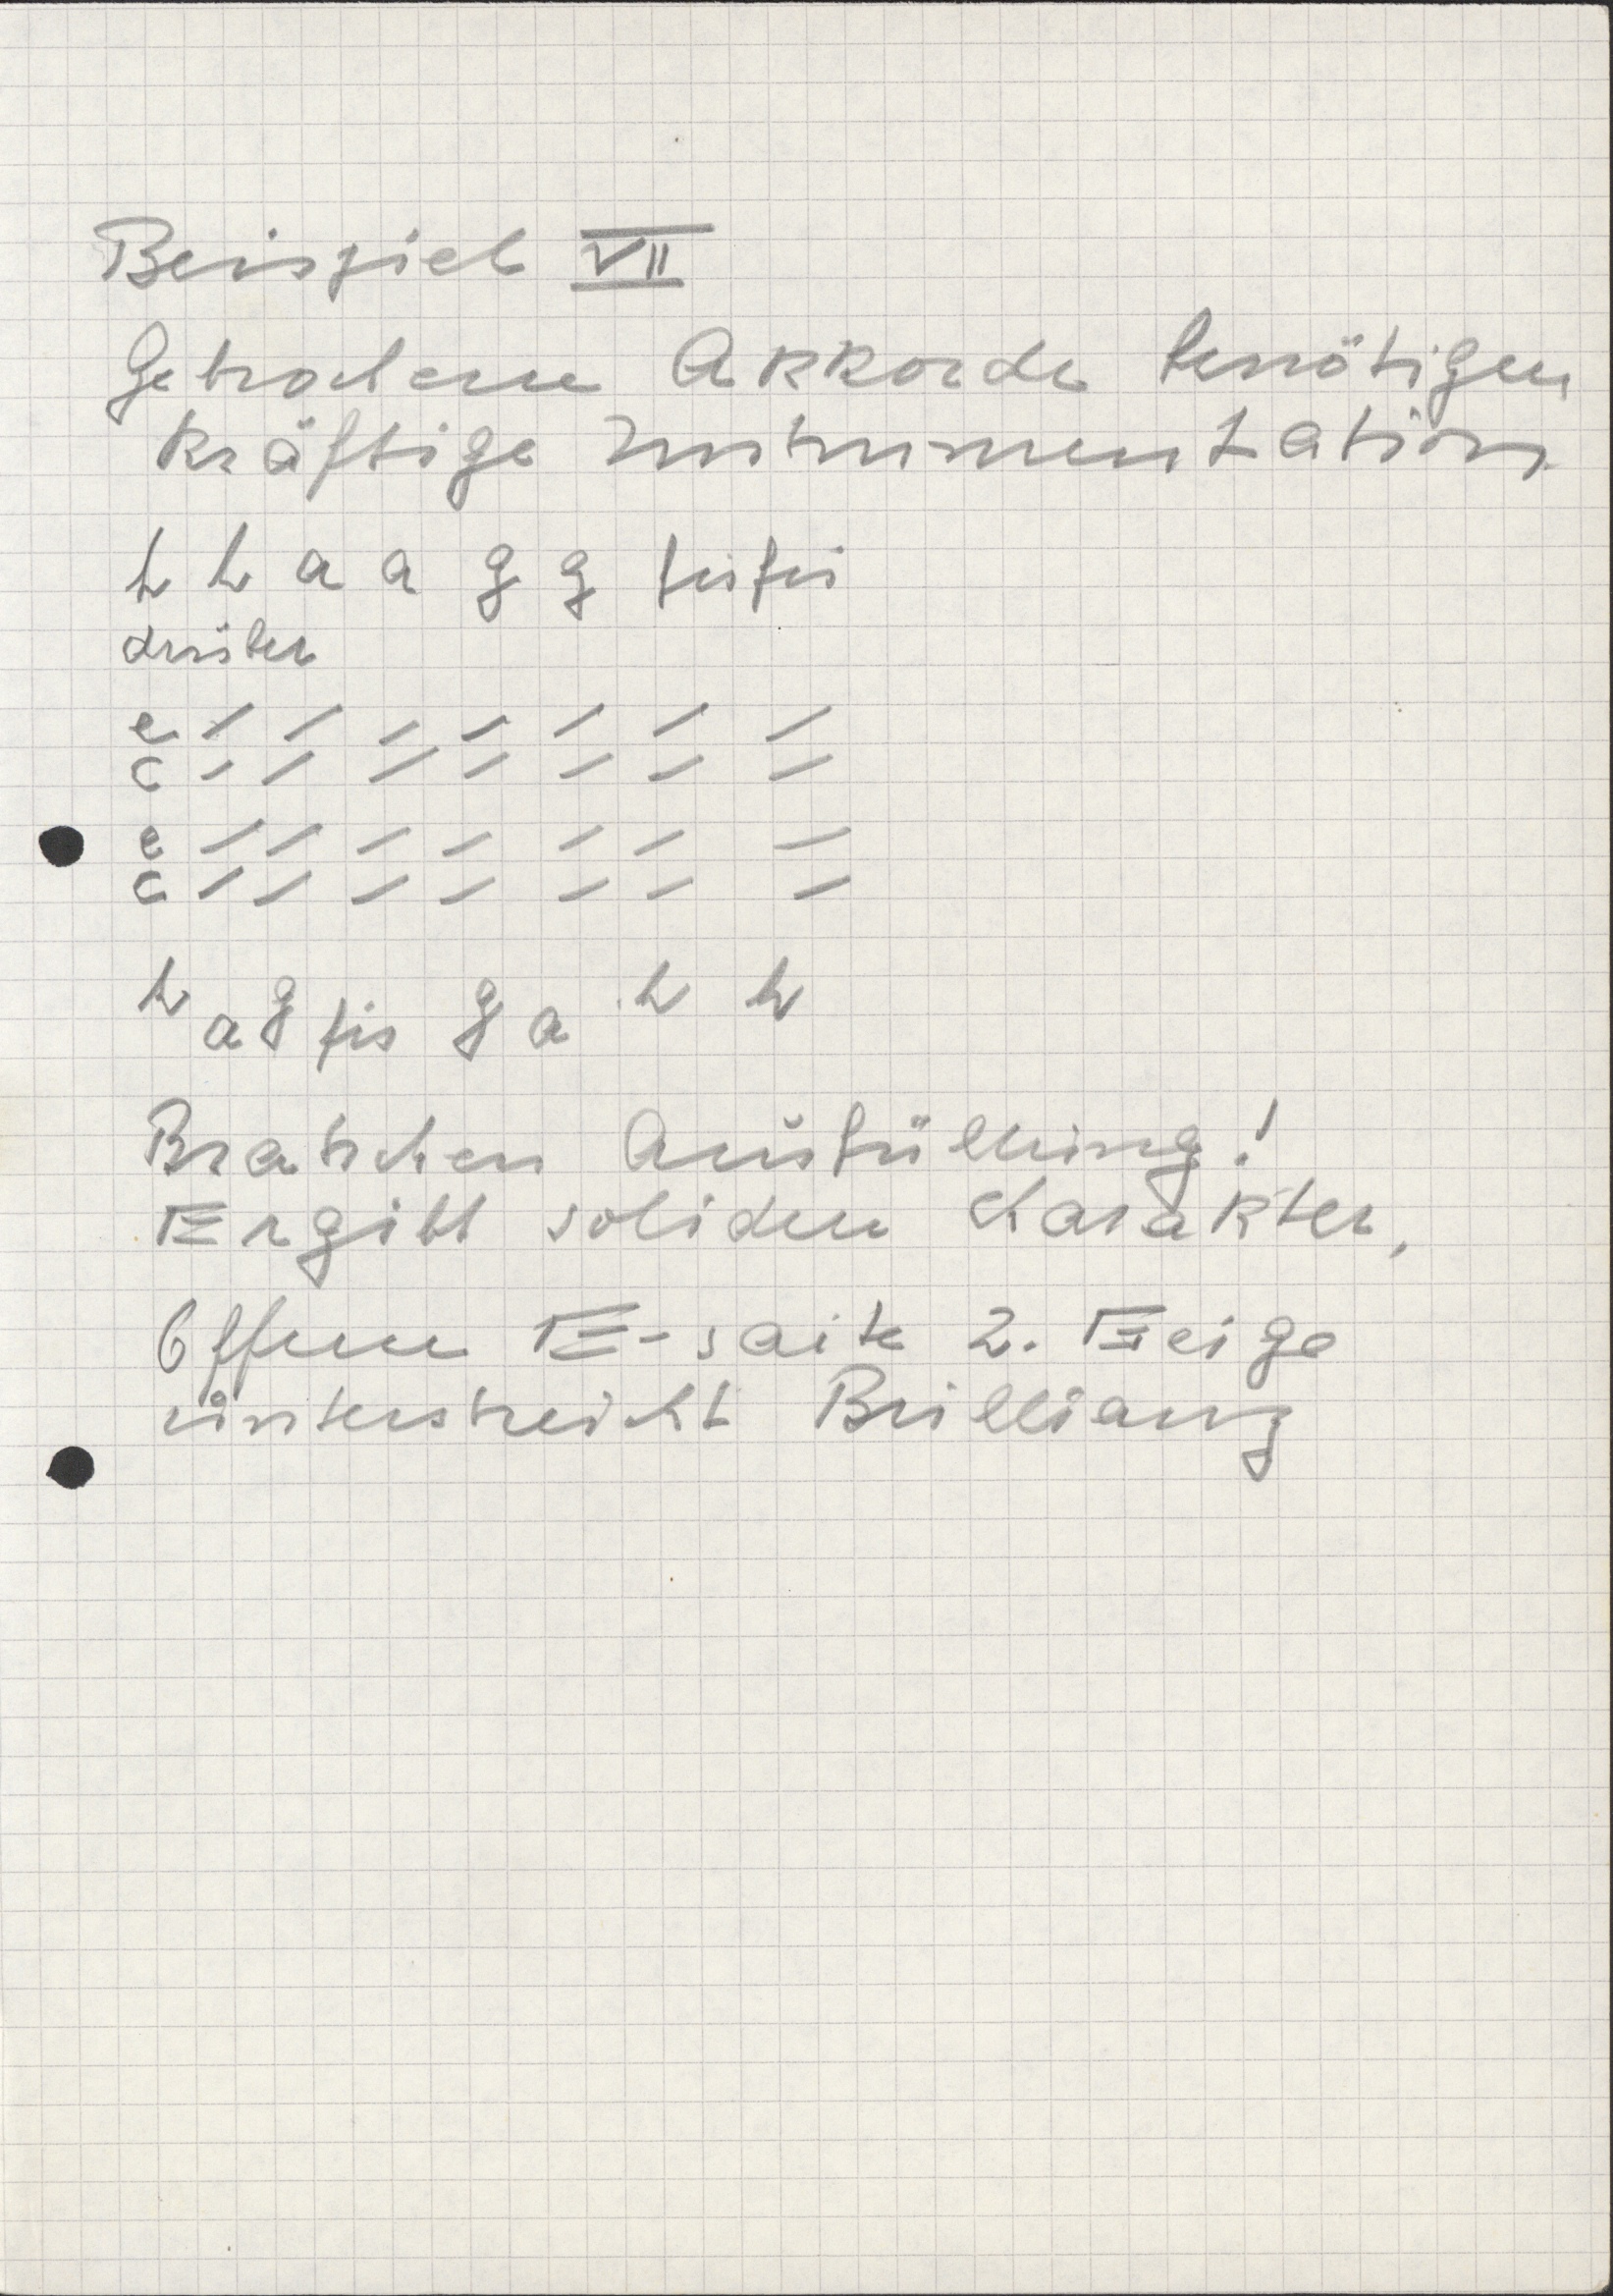 Beispiel VII
Gebrochene Akkorde benötigen
kräftige Instrumentation
h h a a g g fis fis
drüber
e / / / / / / /
c / / / / / / /
e / / / / / / /
c / / / / / / /
h a g fis g a h h
Bratschen Ausfüllung!
Ergibt soliden Charakter,
Offene E-saite 2. Geige
unterstreicht Brillianz